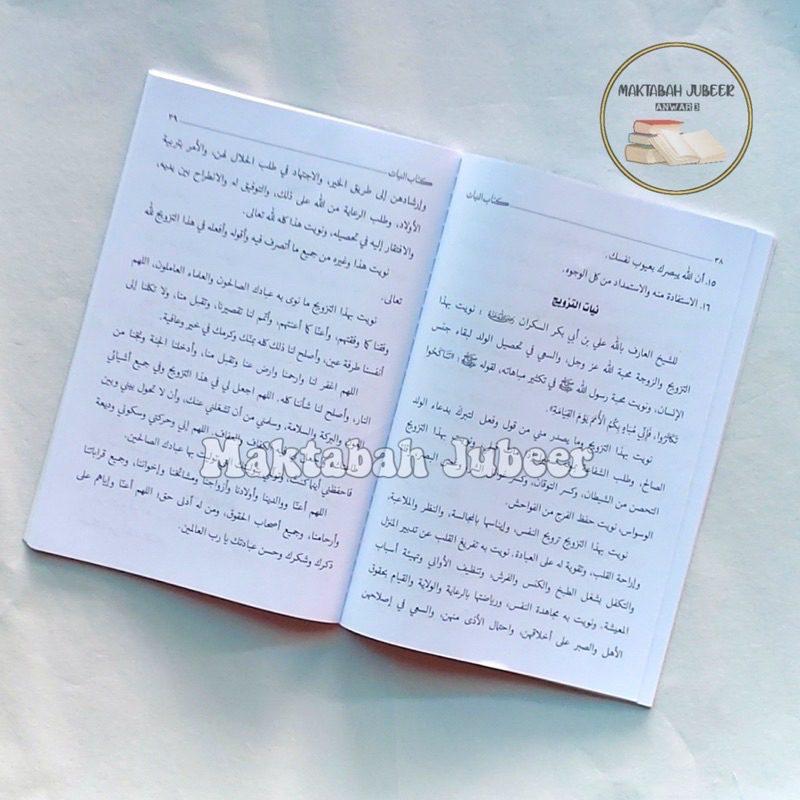 MAKTABAH JUBEER
ANWAR J
كتاب النيات
٣٨
١٥. أن الله يبصرك بعيوب نفسك.
١٦. الاستفادة منه والاستمداد من كل الوجوه.
نيات التزويج
للشيخ العارف بالله علي بن أبي بكر السكران رضي الله عنه: نويت بهذا
التزويج والزوجة محبة الله عز وجل، والسعي في تحصيل الولد لبقاء جنس
الإنسان، ونويت محبة رسول الله ﷺ في تكثير مباهاته، لقوله ﷺ: «تناكحوا
تكاثروا، فإني مُباهٍ بكم الأمم يوم القيامة».
نويت بهذا التزويج وما يصدر مني من قول وفعل لتبرك بدعاء الولد
الصالح، وطلب الشفاعة بهذا التزويج
التحصن من الشيطان، وكسر التوقان، وكسر
الوسواس، نويت حفظ الفرج من الفواحش.
نويت بهذا التزويج ترويح النفس، وإيناسها بالمجالسة، والنظر والملاعبة،
وإراحة القلب، وتقوية له على العبادة. نويت به تفريغ القلب عن تدبير المنزل
والتكفل بشغل الطبخ والكنس والفرش، وتنظيف الأواني وتهيئة أسباب
المعيشة. ونويت به مجاهدة النفس، ورياضتها بالرعاية والولاية والقيام بحقوق
الأهل والصبر على أخلاقهن، واحتمال الأذى منهن، والسعي في إصلاحهن
كتاب النيات
٣٩
وإرشادهن إلى طريق الخير، والاجتهاد في طلب الحلال لهن، والأمر بتربية
الأولاد، وطلب الرعاية من الله على ذلك، والتوفيق له والانطراح بين يديه،
والافتقار إليه في تحصيله، ونويت هذا كله لله تعالى.
نويت هذا وغيره من جميع ما أتصرف فيه وأقوله وأفعله في هذا التزويج لله
تعالى.
نويت بهذا التزويج ما نوى به عبادك الصالحون والعلماء العاملون، اللهم
وفقنا كما وفقتهم، وأعنّا كما أعنتهم، وأتمم لنا تقصيرنا، وتقبل منا، ولا تكلنا إلى
أنفسنا طرفة عين، وأصلح لنا ذلك كله بمنّك وكرمك في خير وعافية.
اللهم اغفر لنا وارحمنا وارض عنا وتقبل منا، وأدخلنا الجنة ونجنا من
النار، وأصلح لنا شأننا كله. اللهم اجعل لي في هذا التزويج وفي جميع أشيائي
والبركة والسلامة، وسلمني من أن تشغلني عنك، وأن لا تحول بيني وبين
اللهم إلى وحركتي وسكوني وديعة
فاحفظني أينما كنت بها عبادك الصالحين.
اللهم أعنّا ووالدينا وأولادنا وأزواجنا ومشائخنا وإخواننا، وجميع قراباتنا
وأرحامنا، وجميع أصحاب الحقوق، ومن له أدنى حق، اللهم أعنّا وإياهم على
ذكرك وشكرك وحسن عبادتك يا رب العالمين.
Maktabah Jubeer